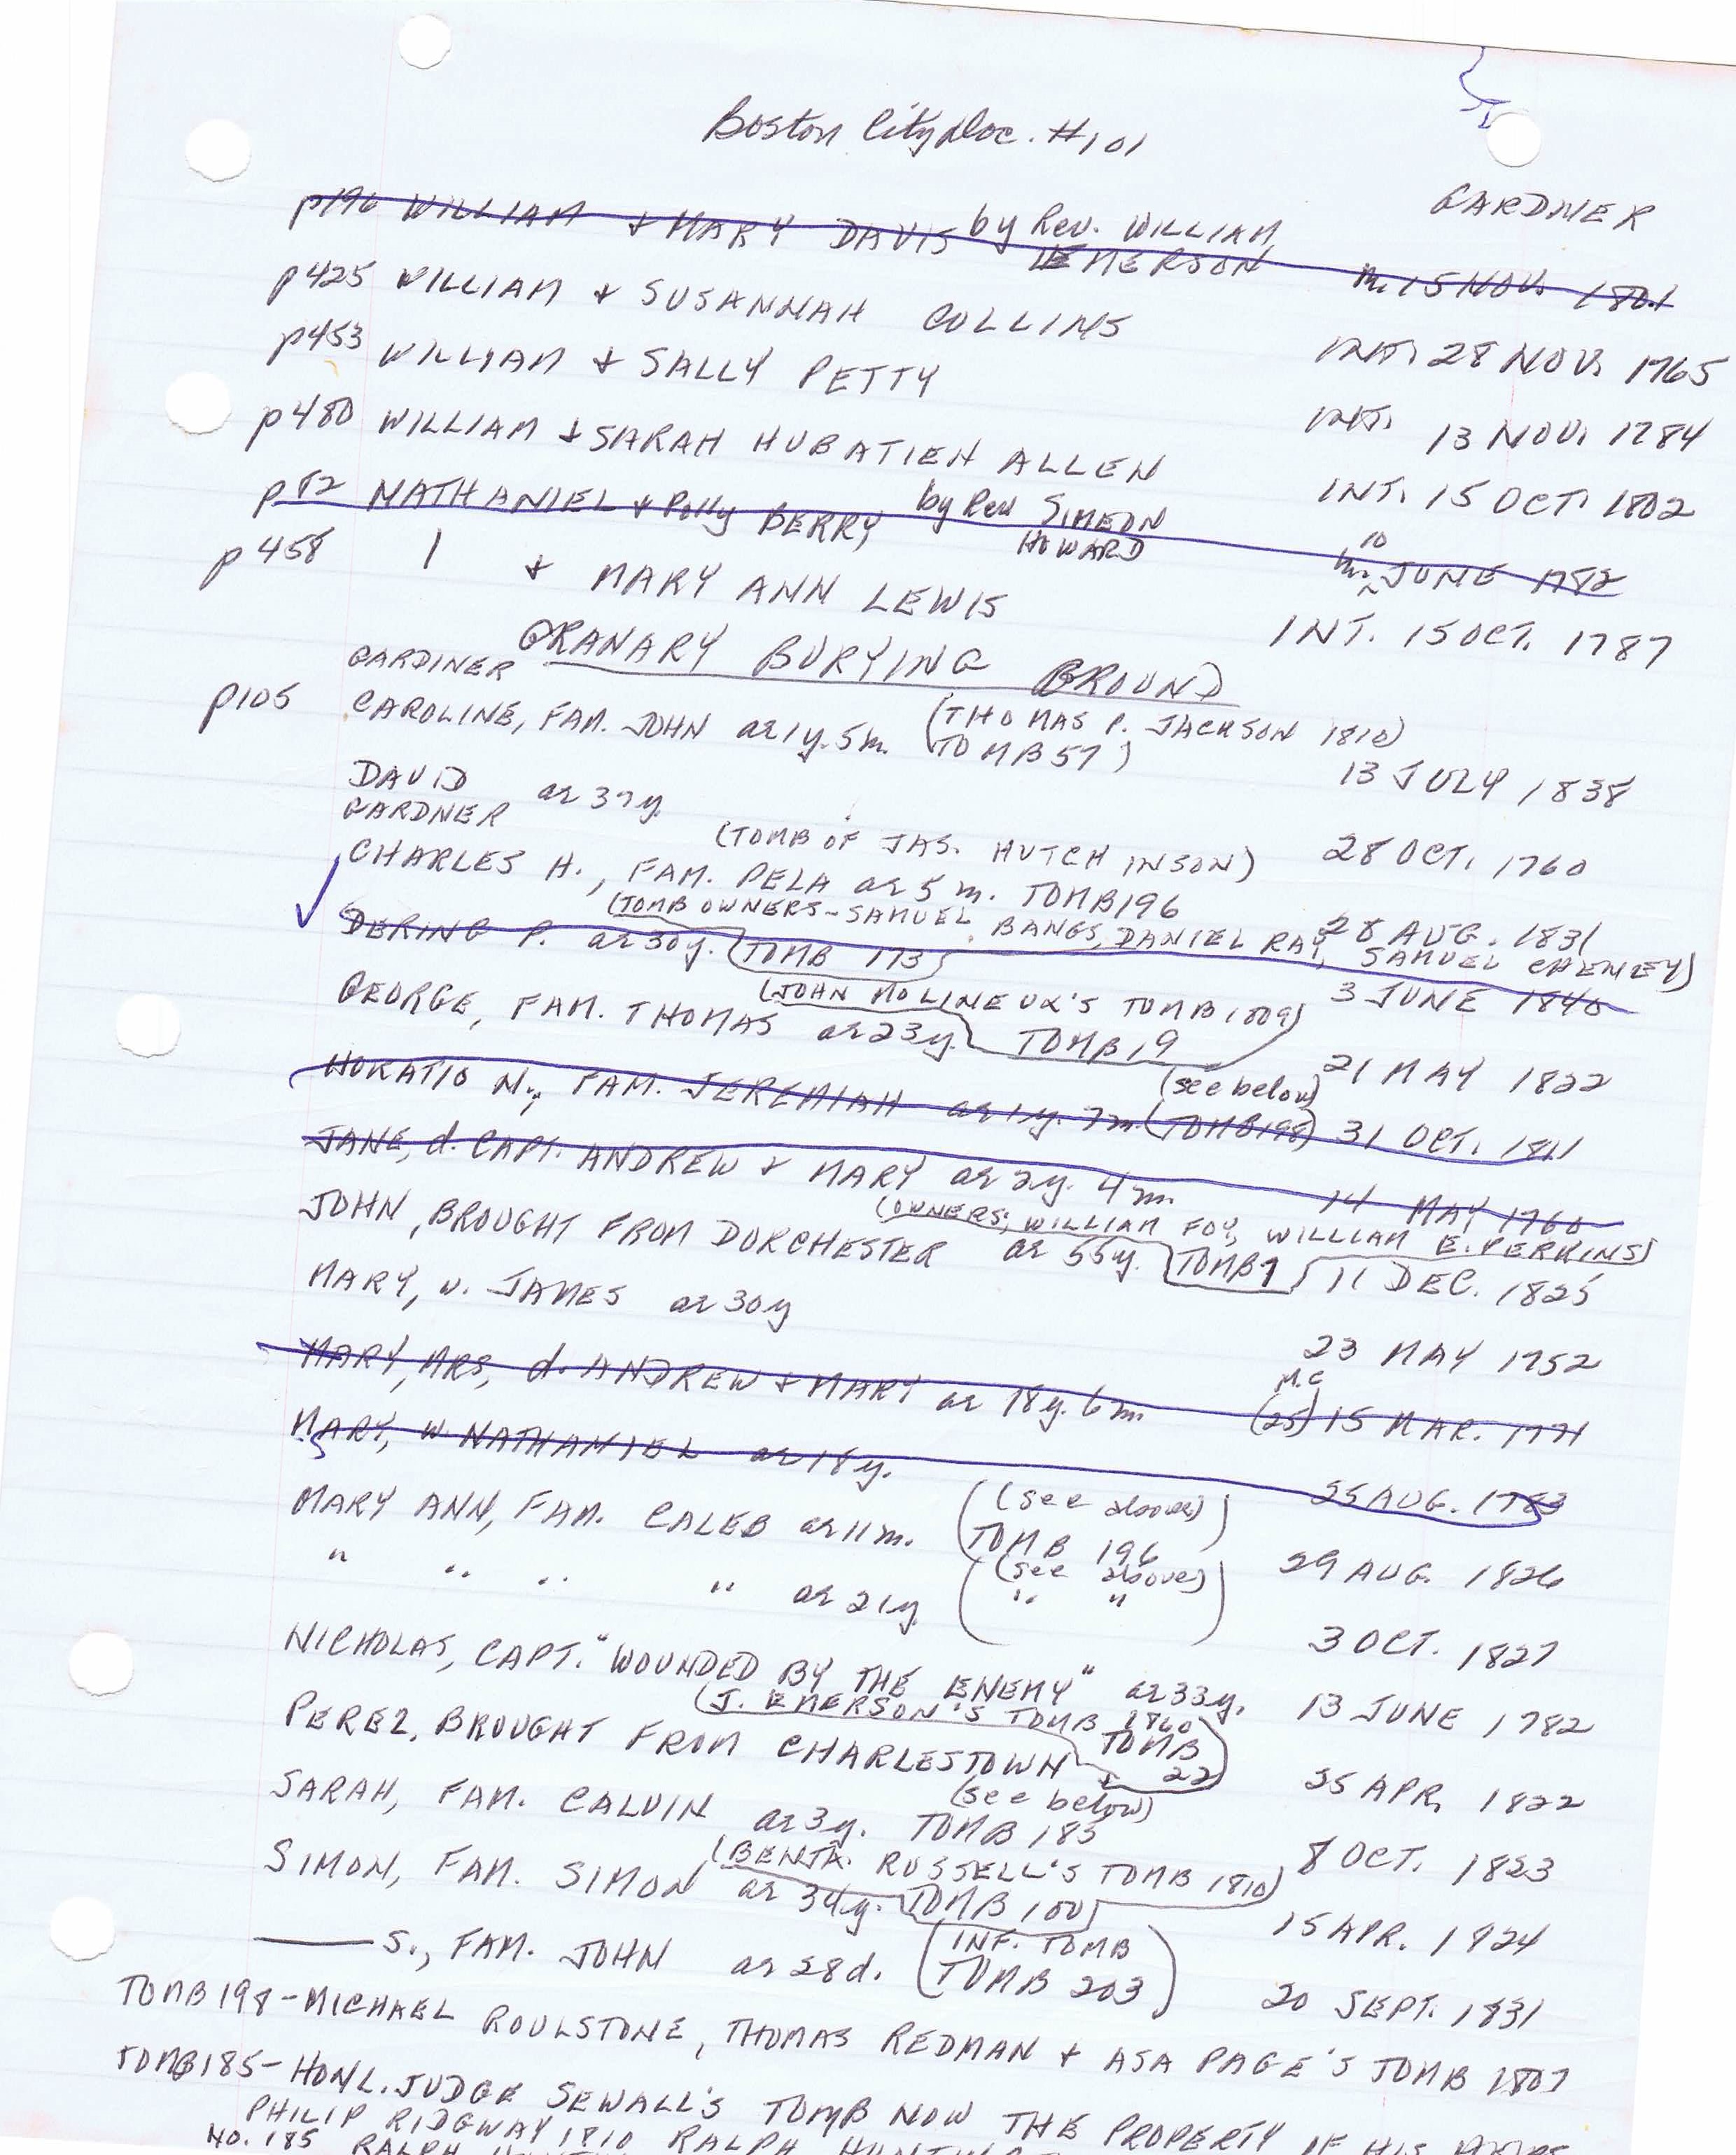 Boston City Doc. #101
GARDNER
p196 WILLIAM & MARY DAVIS by Rev. WILLIAM EMERSON m. 15 NOV. 1801
p425 WILLIAM & SUSANNAH COLLINS INT. 28 NOV. 1765
p453 WILLIAM & SALLY PETTY INT. 13 NOV. 1784
p480 WILLIAM & SARAH HUBATIEH ALLEN INT. 15 OCT. 1802
p82 NATHANIEL & Polly BERRY by Rev SIMEON HOWARD m. 10 JUNE 1782
p458 & MARY ANN LEWIS INT. 15 OCT. 1787
GRANARY BURYING GROUND
GARDINER
p105 CAROLINE, FAM. JOHN ae 1y. 5m. (THOMAS P. JACKSON 1810) (TOMB 57) 13 JULY 1838
DAVID ae 37y. (TOMB OF JAS. HUTCHINSON) 28 OCT. 1760
GARDNER
CHARLES H., FAM. PELA ae 5 m. TOMB 196 28 AUG. 1831
(TOMB OWNERS - SAMUEL BANGS, DANIEL RAY, SAMUEL CHENEY)
DERING P. ae 30y. TOMB 173 3 JUNE 1840
(JOHN MOLINEUX'S TOMB 1809)
GEORGE, FAM. THOMAS ae 23y. TOMB 19 21 MAY 1822
(see below)
HORATIO N., FAM. JEREMIAH ae 1y. 7m. (TOMB 198) 31 OCT. 1811
JANE, d. CAPT. ANDREW & MARY ae 2y. 4m. 14 MAY 1760
(OWNERS, WILLIAM FOY, WILLIAM E. PERKINS)
JOHN, BROUGHT FROM DORCHESTER ae 55y. TOMB 1 11 DEC. 1825
MARY, w. JAMES ae 30y 23 MAY 1752
M.C
MARY, MRS, d. ANDREW & MARY ae 18y. 6m. (25) 15 MAR. 1771
MARY, w. NATHANIEL ae 18y. 25 AUG. 1783
MARY ANN, FAM. CALEB ae 11m. (see above) TOMB 196 29 AUG. 1826
" " " " ae 21y. (see above) " " 3 OCT. 1827
NICHOLAS, CAPT. "WOUNDED BY THE ENEMY" ae 33y. 13 JUNE 1782
(J. EMERSON'S TOMB 1860)
PEREZ, BROUGHT FROM CHARLESTOWN TOMB 22 25 APR. 1822
(see below)
SARAH, FAM. CALVIN ae 3y. TOMB 185 8 OCT. 1823
(BENJA. RUSSELL'S TOMB 1810)
SIMON, FAM. SIMON ae 34y. TOMB 100 15 APR. 1824
——— S., FAM. JOHN ae 28d. (INF. TOMB TOMB 203) 20 SEPT. 1831
TOMB 198 - MICHAEL ROULSTONE, THOMAS REDMAN & ASA PAGE'S TOMB 1807
TOMB 185 - HONL. JUDGE SEWALL'S TOMB NOW THE PROPERTY OF HIS
PHILIP RIDGWAY 1810 RALPH
NO. 185 RALPH